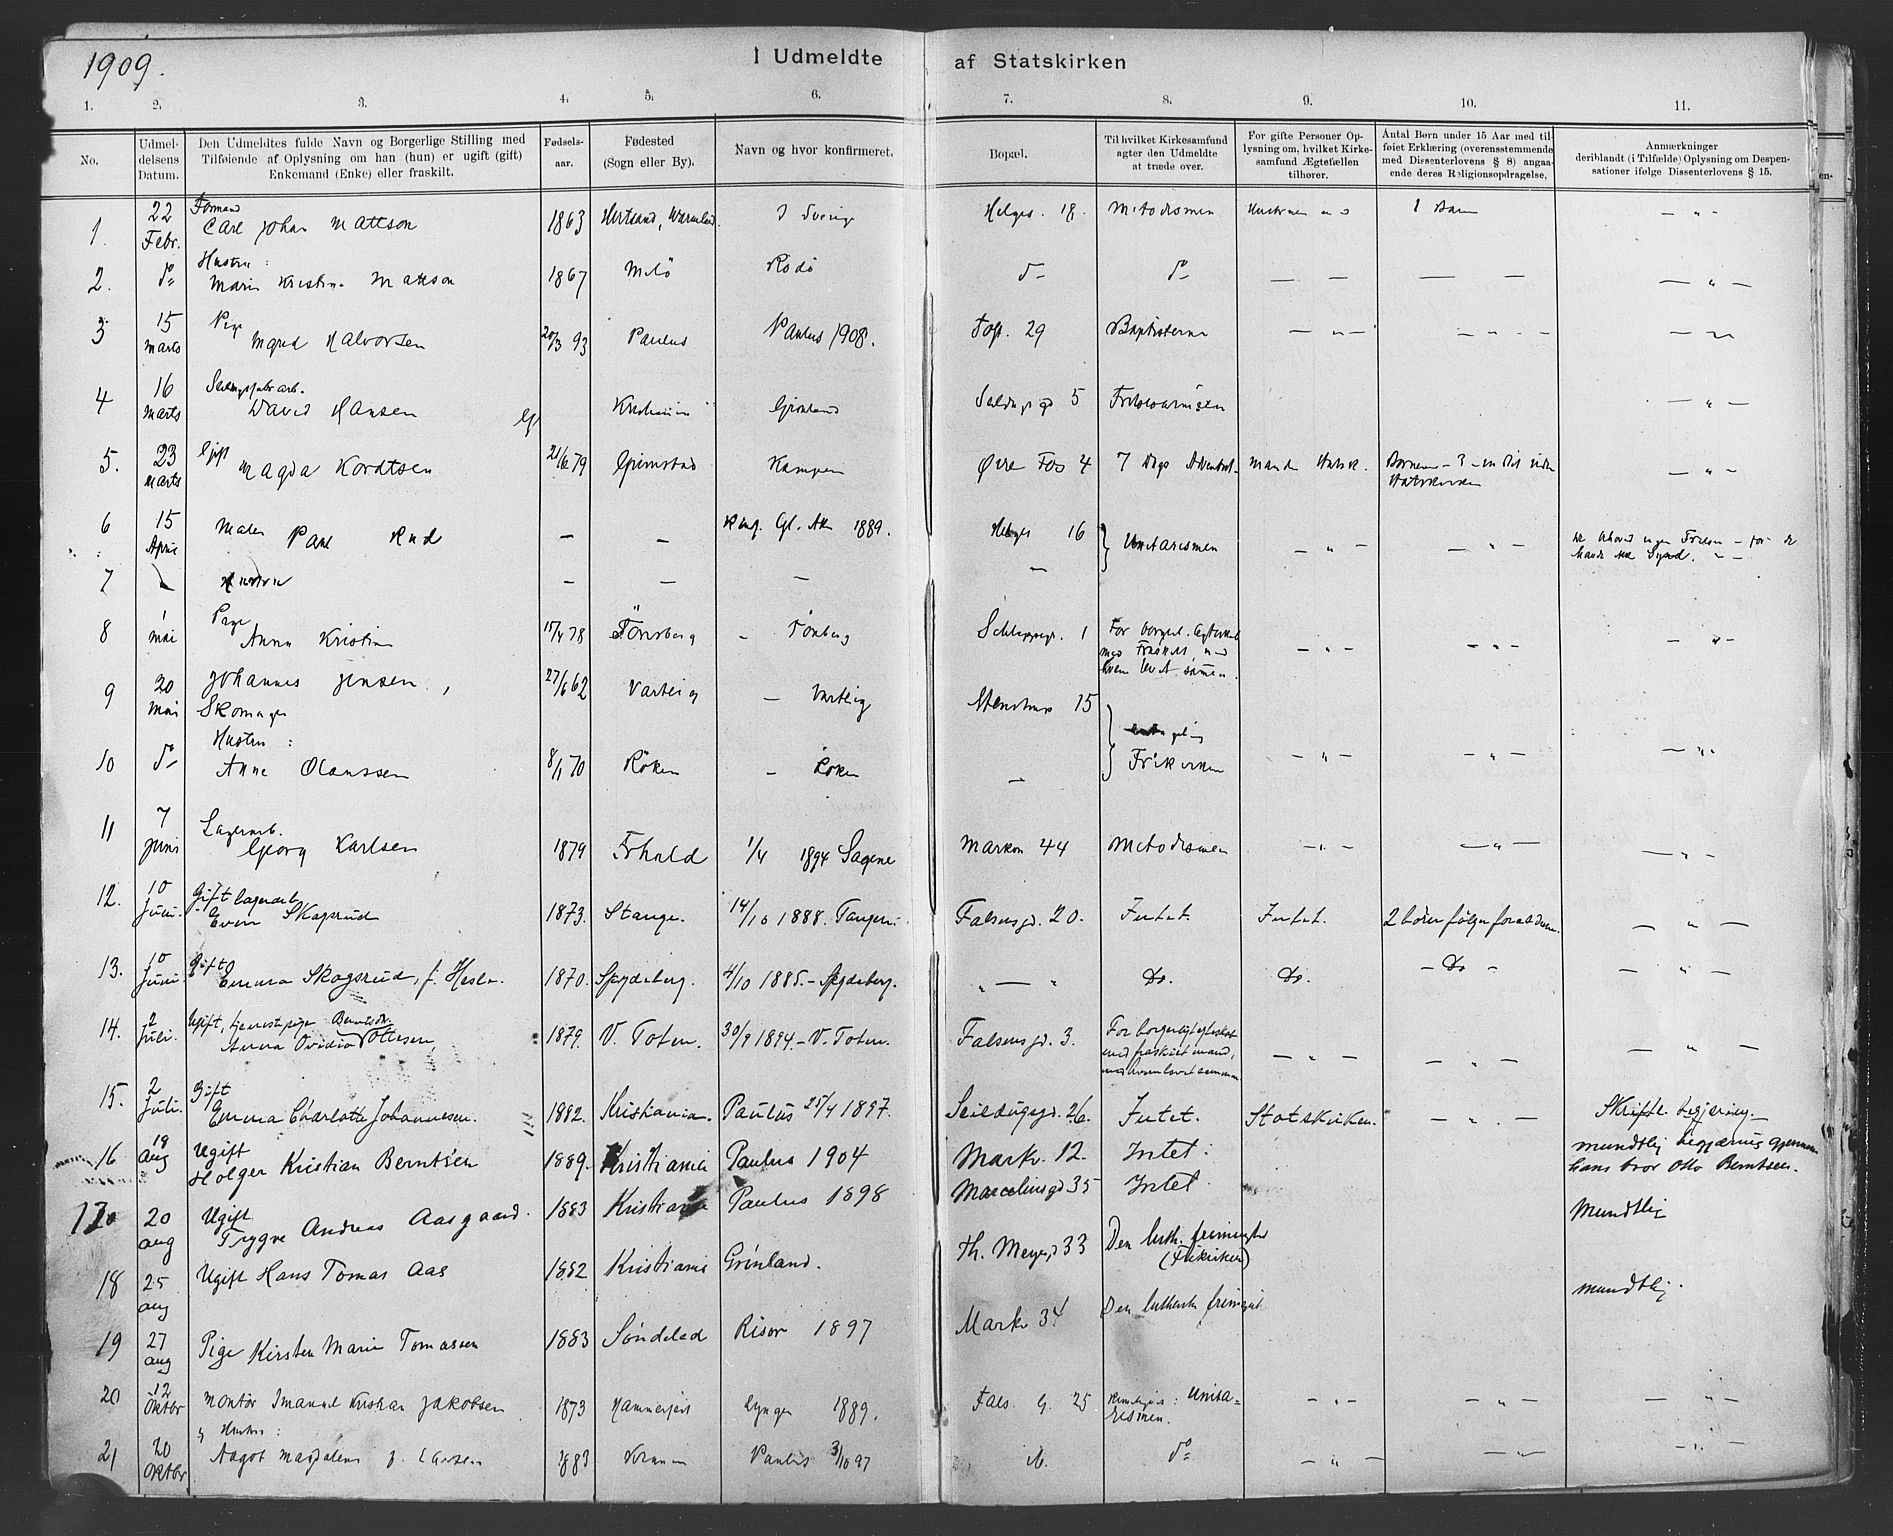 1909.
I Udmeldte af Statskirken
1. 2. 3. 4. 5. 6. 7. 8. 9. 10. 11.
No.
Udmel-
delsens
Datum.
Den Udmeldtes fulde Navn og Borgerlige Stilling med
Tilføiende af Oplysning om han (hun) er ugift (gift)
Enkemand (Enke) eller fraskilt.
Fødsels-
aar.
Fødested
(Sogn eller By).
Navn og hvor konfirmeret.
Bopæl.
Til hvilket Kirkesamfund
agter den Udmeldte
at træde over.
For gifte Personer Op-
lysning om, hvilket Kirke-
samfund Ægtefællen
tilhører.
Antal Børn under 15 Aar med til-
føiet Erklæring (overensstemmende
med Dissenterlovens § 8) angaa-
ende deres Religionsopdragelse,
Anmærkninger
deriblandt (i Tilfælde) Oplysning om Despen-
sationer ifølge Dissenterlovens § 15.
en-
1. 22 Febr. Formand Carl Johan Mattson 1863 I Sverige Helges. 18. Metodismen 1 Barn — " —
2. do Hustru: Marie Kristina Mattson 1867 Rødø do do — — — — — " —
3 15 marts Pige Ingrid Halvorsen 20/3 93 Paulus Paulus 1908. Fos. 29 Baptisterne — " — — " — — " —
4 16 marts David Hansen Kristiania Grønland Seildugsgd 5 — " —
5. 23 marts Gift Magda Kordtsen 21/6 79 Grimstad Kampen Øvre Fos 4 7 Dags Adventist- Manden Statsk. Børnene – 3 – Statskirken — " —
6 15 April Maler Paul Rud — — Konf. Gl. Aker 1889. Helges 16 Unitarismen — " — — " —
7 Hustru — — — —
8 1 mai Pige Anna Kristin 15/4 78 Tönsberg – Tønsberg Schleppegr. 1 For borgerl. Ægteskab med Fraskilt, med hvem levet sammen. — " — — " — — " —
9 20 mai Johannes Jensen, Skomager 27/6 62 Varteig — Varteig Stenstrups 15
10 do Hustru: Anne Olaussen 8/1 70 Røken – Røken — Frikirken — " — — " — — " —
11 7 juni Lagerarb. Georg Karlsen 1879 1/4 1894 Sagene Markvn 44 Metodismen — " — — " — — " —
12. 10 Juni. Gift lagerarb. Even Skogsrud 1873. Stange. 14/10 1888. Tangen. Falsensgd. 20. Intet. Intet. 2 børn følger forældrene. — " —
13. 10 Juni. Gift Emma Skogsrud, f. Hesle. 1870. Spydeberg. 4/10 1885.– Spydeberg. " — " Do. Do. – Do – — " —
14. 2 Juli. Ugift, tjenestepige Berntsdtr. Anna Ovidia Ottesen, 1879. V. Toten. 30/9 1894.– V. Toten. Falsensgd. 3. For borgerligt egteskab med fraskilt mand, med hvem levet sammen — " — — " — — " —
15. 2 Juli. Gift Emma Charlotte Johannesen. 1882. Kristiania. Paulus 25/4 1897. Seildugsgd. 26. Intet. Statskirken. — " — Skriftl. begjæring.
16 19 aug Ugift Holger Kristian Berntsen 1889. Kristiania Paulus 1904 Markv. 12. Intet. mundtlig begjæring gjennem hans bror Otto Berntsen.
17 20 aug Ugift Trygve Andreas Aasgaard. 1883 Kristiania Paulus 1898 Marselinsgd 35 Intet. Mundtlig
18 25 aug Ugift Hans Tomas Aas 1882 Kristiania Grønland. Th. Meyersgd 33 Den luth. frimenighed (Frikirken) mundtlig.
19 27 aug Pige Kirsten Marie Tomassen 1883 Søndeled Risør 1897 Markv 34 Den lutherske frimenighet
20 12 oktbr Montør Imanuel Kristian Jakobsen 1873 Hammerfest Lyngen 1889. Fals. G. 25 Unitarismen. — " — — " — — " —
21 20 oktbr " Hustru: Aagot Magdalena f. Larsen 1883 Paulus 3/10 97 ib. do — " — — " — — " —